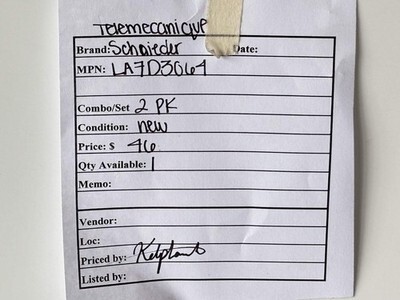 Telemecanique
Brand: Schnieder Date:
MPN: LA7D3064
Combo/Set 2 PK
Condition: new
Price: $ 46
Qty Available: 1
Memo:
Vendor:
Loc:
Priced by:
Listed by: